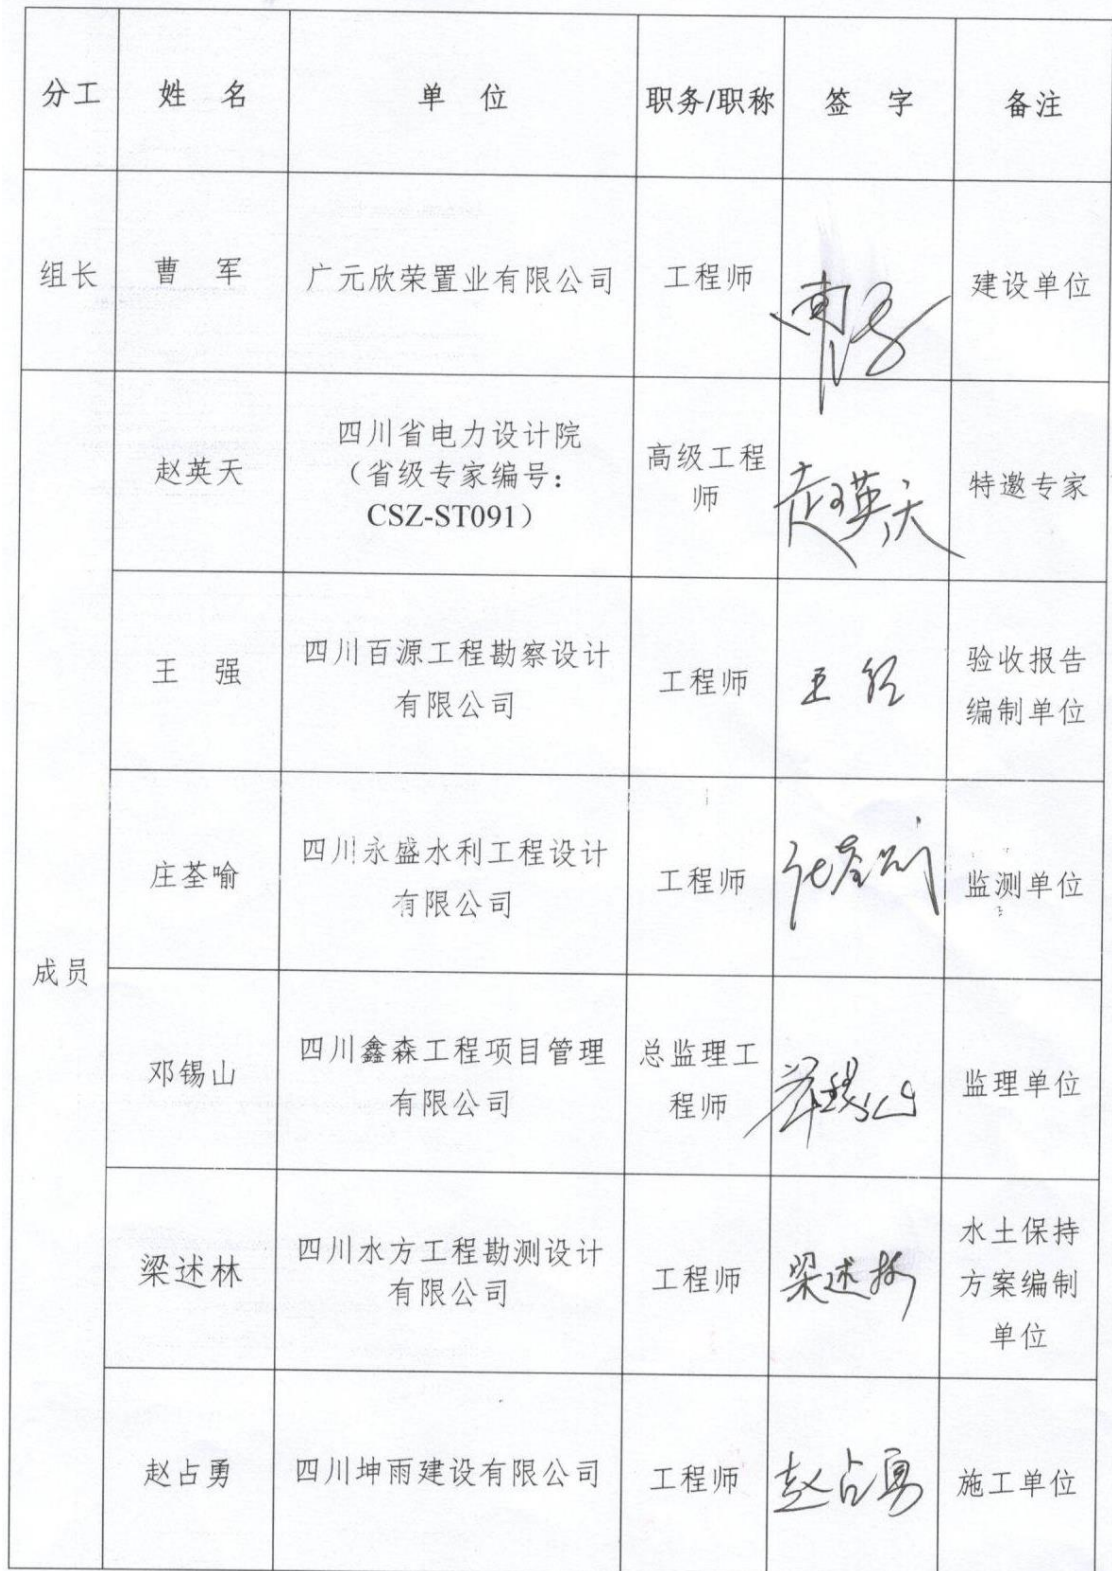 分工 姓 名 单 位 职务/职称 签 字 备注
组长 曹 军 广元欣荣置业有限公司 工程师 建设单位
赵英天
四川省电力设计院
（省级专家编号：
CSZ-ST091）
高级工程
师
赵英天
特邀专家
王 强
四川百源工程勘察设计
有限公司
工程师
王强
验收报告
编制单位
庄荃喻
四川永盛水利工程设计
有限公司
工程师
监测单位
成员
邓锡山
四川鑫森工程项目管理
有限公司
总监理工
程师
监理单位
梁述林
四川水方工程勘测设计
有限公司
工程师
梁述林
水土保持
方案编制
单位
赵占勇 四川坤雨建设有限公司 工程师 赵占勇 施工单位